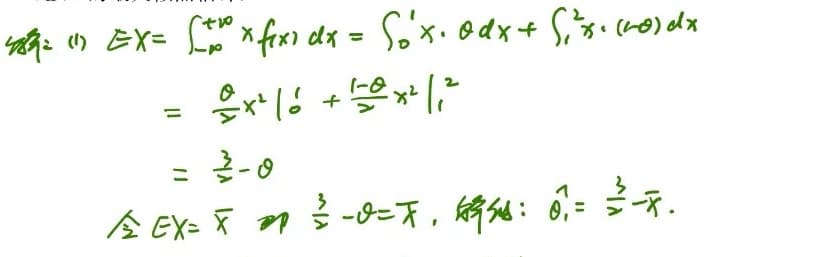 解: (1) EX = ∫_{-∞}^{+∞} x f(x) dx = ∫_0^1 x·θ dx + ∫_1^2 x·(1-θ) dx
= θ/2 x² |_0^1 + (1-θ)/2 x² |_1^2
= 3/2 - θ
令 EX = X̄ 即 3/2 - θ = X̄, 解得: θ̂₁ = 3/2 - X̄.